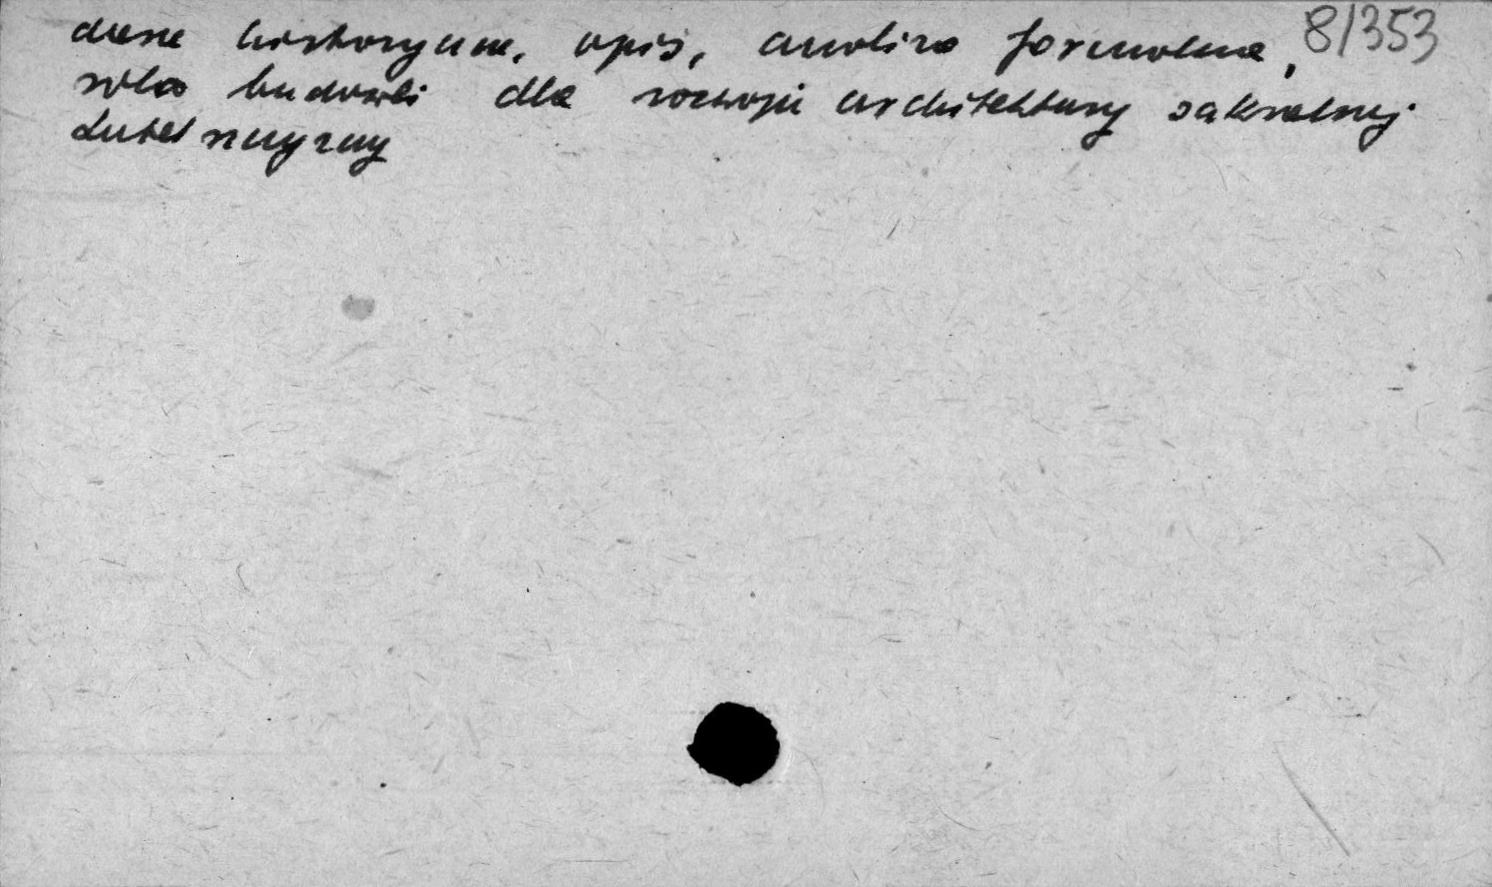 dane historyczne, opis, analiza formalna, 8/353
rola budowli dla rozwoju architektury sakralnej
Lubelszczyzny